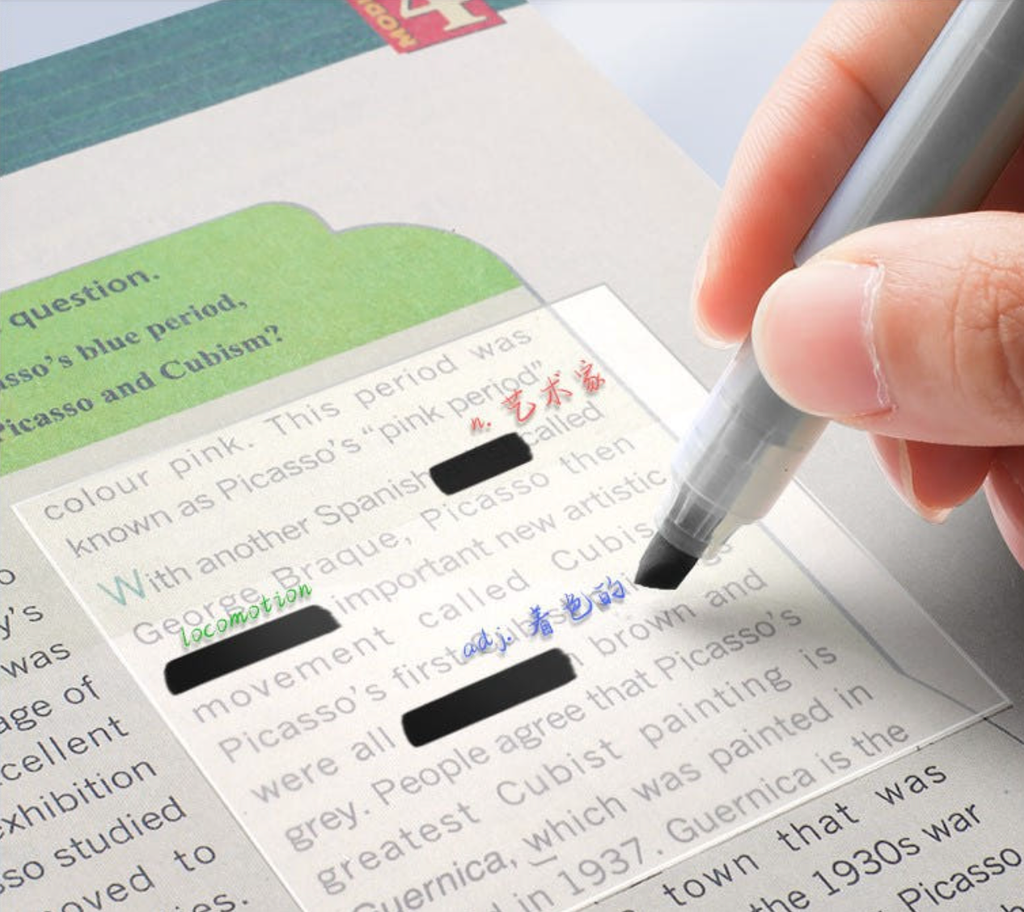 4
MODU
question.
asso's blue period,
Picasso and Cubism?
colour pink. This period was
known as Picasso's "pink period"
n. 艺术家
With another Spanish called
George Braque, Picasso then
locomotion
important new artistic
movement called
adj. 着色的
Picasso's first
were all brown and
grey. People agree that Picasso's
greatest Cubist painting is
Guernica, which was painted in
in 1937. Guernica is the
town that was
the 1930s war
Picasso
y's
was
age of
cellent
exhibition
sso studied
oved to
es.